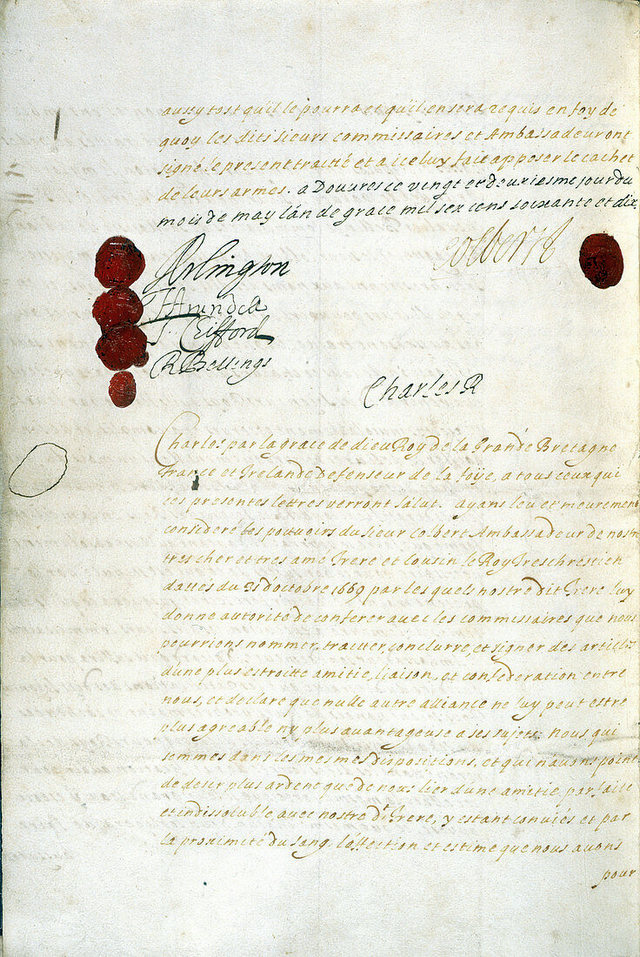 aussy tost qu'il le pourra et qu'il en sera requis en foy de
quoy les dies sieurs commissaires et Ambassadeur ont
signé le present traitté et a iceluy fait apposer le cachet
de leurs armes. a Douures ce vingt et deuxiesme jour du
mois de may l'an de grace mil six cens soixante et dix
Colbert
Arlington
T Arundell
T. Clifford
R Bellings
Charles R
Charles par la grace de dieu Roy de la Grande Bretagne
France et Irelande defenseur de la foye, a tous ceux qui
ces presentes lettres verront salut. ayans leu et meurement
consideré les pouvoirs du sieur Colbert Ambassadeur de nostre
tres cher et tres amé frere et cousin le Roy Treschrestien
dattés du 31 d'octobre 1669 par les quels nostre dit frere luy
donne autorité de conferer avec les commissaires que nous
pourrions nommer, traiter, conclurre, et signer des articles
d'une plus estroite amitie, liaison, et confederation entre
nous, et declare que nulle autre alliance ne luy peut estre
plus agreable ny plus avantageuse a ses sujets. Nous qui
sommes dans les mesmes dispositions, et qui n'auons point
de desir plus ardent que de nous lier d'une amitie parfaite
et indissoluble avec nostre dt frere, y estant conviés et par
la proximité du sang, l'affection et estime que nous avons
pour